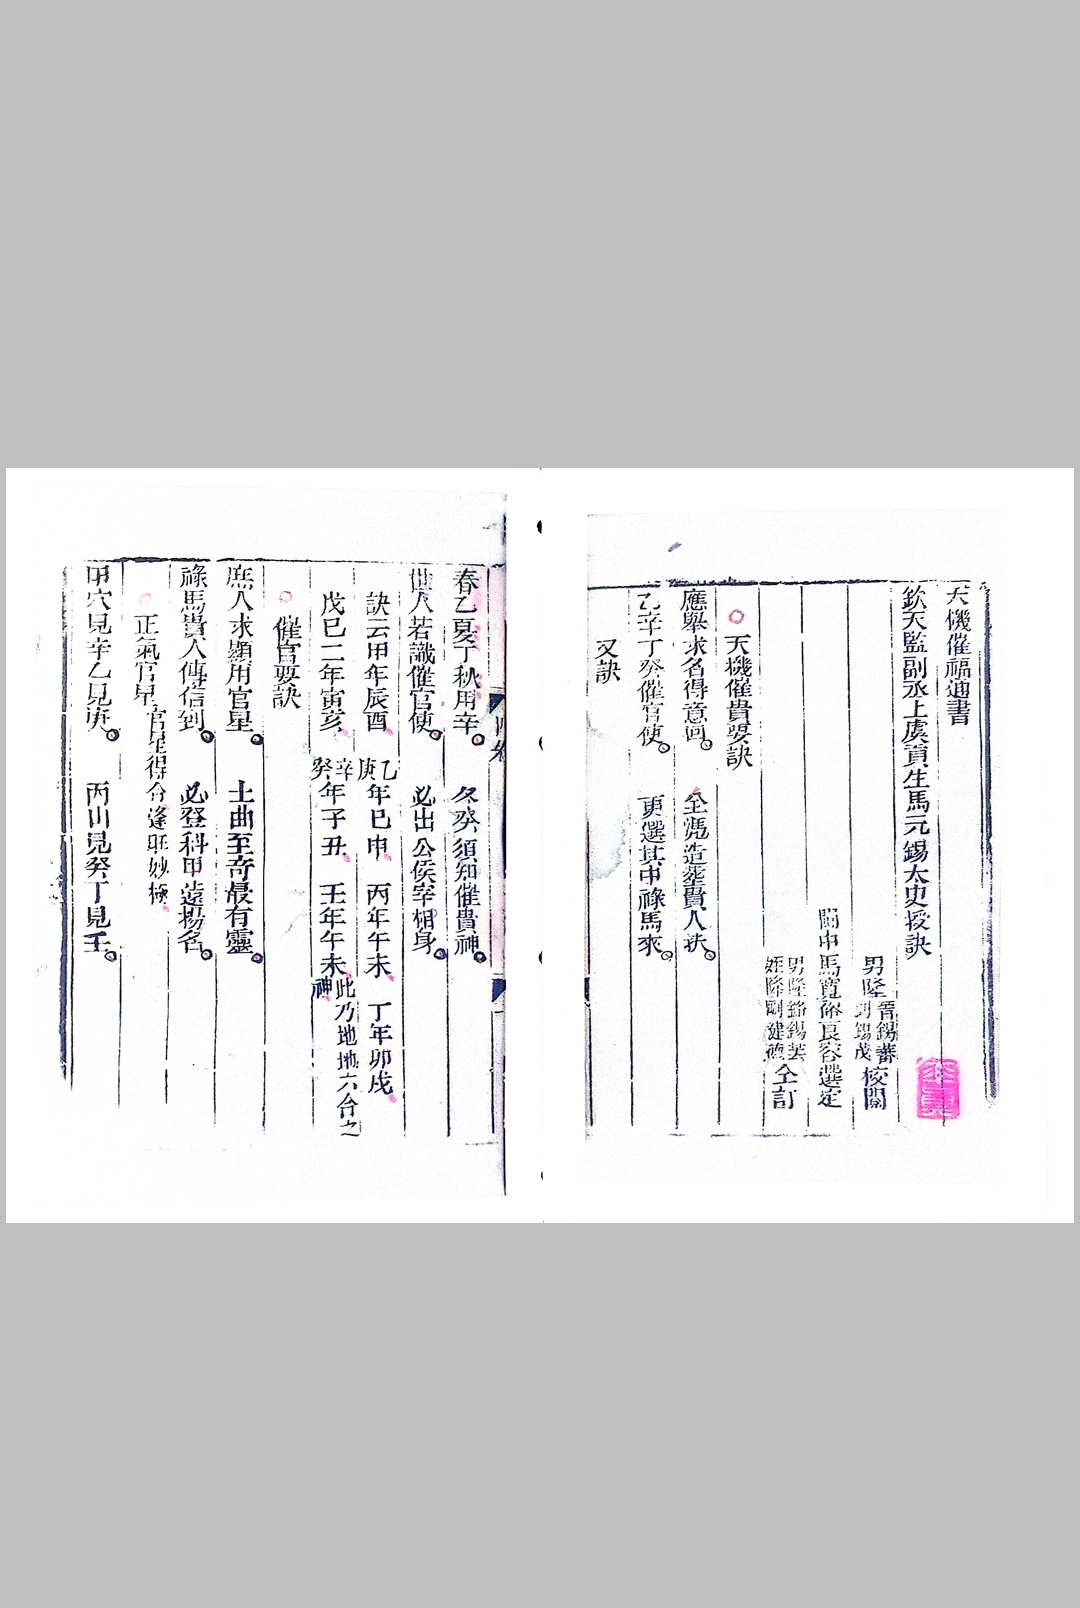 天機催福通書
欽天監副丞上虞貢生馬元錫太史授訣
男陞 晉錫蕃 錫茂 校閱
閩中馬寬裕良容選定
男陞 錫 姪陞 健 仝訂
天機催貴要訣
應舉求名得意回 全凴造塟貴人扶
乙辛丁癸催官使 更選其中祿馬來
又訣
春乙夏丁秋用辛 冬癸須知催貴神
世人若識催官使 必出公侯宰相身
訣云甲年辰酉 乙庚年巳申 丙年午未 丁年卯戌
戊巳二年寅亥 辛癸年子丑 壬年午未 此乃地地六合之神
催官要訣
庶人求顯用官星 土曲至奇最有靈
祿馬貴人傳信到 必登科甲遠揚名
正氣官星 官星得合逢旺妙極
甲穴見辛乙見庚 丙山見癸丁見壬